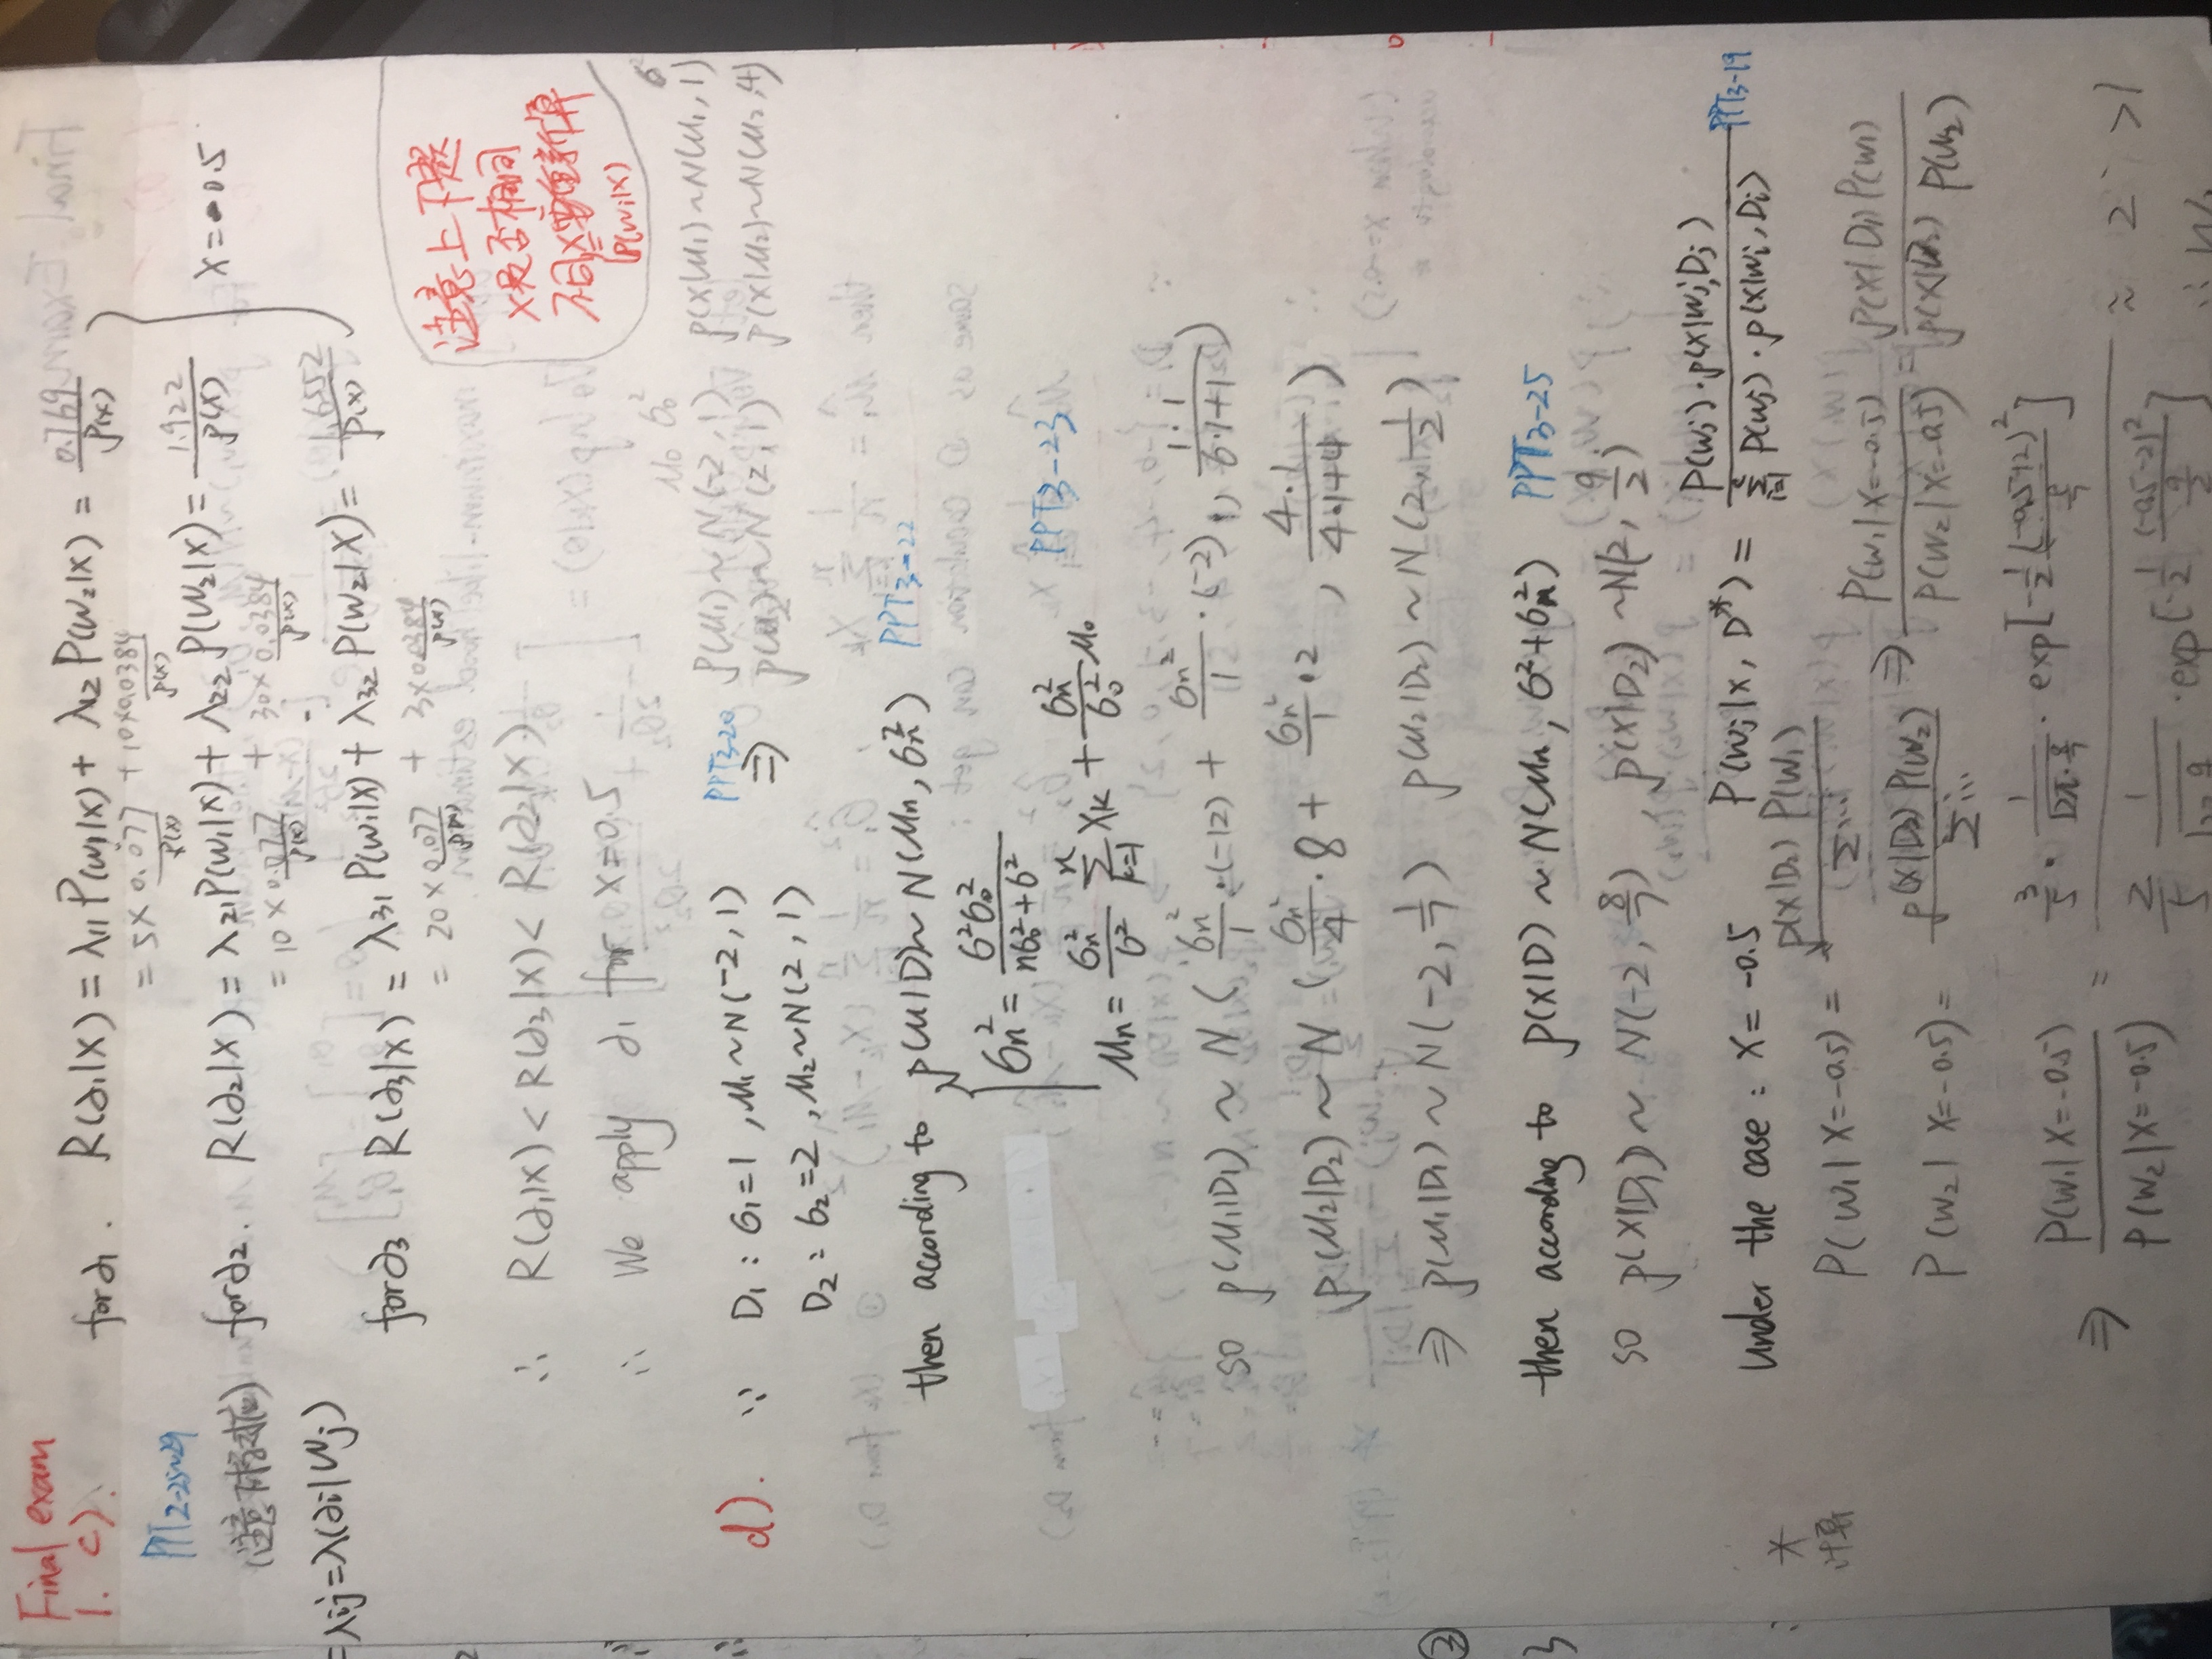 Final exam
1. c).
for ∂1. R(∂1|X) = λ11 P(w1|X) + λ12 P(w2|X) = 0.769/P(x)
= 5×0.077/P(x) + 10×0.0384/P(x)
PPT2-25~29
for ∂2. R(∂2|X) = λ21 P(w1|X) + λ22 P(w2|X) = 1.922/P(X)
= 10×0.077/P(x) + 30×0.0384/P(x)
X = -0.5
=λij=λ(∂i|Wj)
for ∂3 R(∂3|X) = λ31 P(w1|X) + λ32 P(w2|X) = 1.6552/P(x)
= 20×0.077/P(x) + 3×0.0384/P(x)
注意上下题
X是否相同
不同X要重新算
P(wi|x)
∴ R(∂1|X) < R(∂3|X) < R(∂2|X)
∴ We apply ∂1 for X=0.5
μ0 σ0² σ²
d). ∵ D1: σ1=1, μ1~N(-2,1) PPT3-20 ⇒ P(μ1)~N(-2,1) p(x|μ1)~N(μ1,1)
D2: σ2=2, μ2~N(2,1) p(μ2)~N(2,1) p(x|μ2)~N(μ2,4)
then according to p(μ|D)~N(μn, σn²) PPT3-22
σn² = σ²σ0²/(nσ0²+σ²)
μn = σn²/σ² Σ(k=1..n) Xk + σn²/σ0² μ0 PPT3-23
so p(μ1|D1) ~ N(σn²/1·(-12) + σn²/1·(-2), 1·1/(6·1+1))
p(μ2|D2) ~ N(σn²/4·8 + σn²/1·2, 4·1/(4·1+4))
⇒ p(μ1|D1)~N(-2, 1/7) p(μ2|D2)~N(2, 1/2)
then according to p(X|D) ~ N(μn, σ²+σn²) PPT3-25
so p(X|D1) ~ N(-2, 8/7), p(X|D2) ~N(2, 9/2)
under the case: X= -0.5 P(wj|x, D*) = P(wj)·p(x|wj,Dj) / Σ(i=1) P(wj)·p(x|wi,Di) PPT3-19
*
计算
P(w1|X=-0.5) = p(X|D2) P(W1)/Σ...
P(W2|X=-0.5) = p(X|D2) P(W2)/Σ... ⇒ P(w1|X=-0.5)/P(W2|X=-0.5) = p(X|D1)P(W1)/p(X|D2) P(W2)
⇒ P(w1|X=-0.5)/P(W2|X=-0.5) = 3/5 · 1/√(2π·8/7) · exp[-1/2 (-0.5+2)²/(8/7)] / 2/5 · 1/√(2π·9/2) · exp[-1/2 (-0.5-2)²/(9/2)] ≈ 2 >1